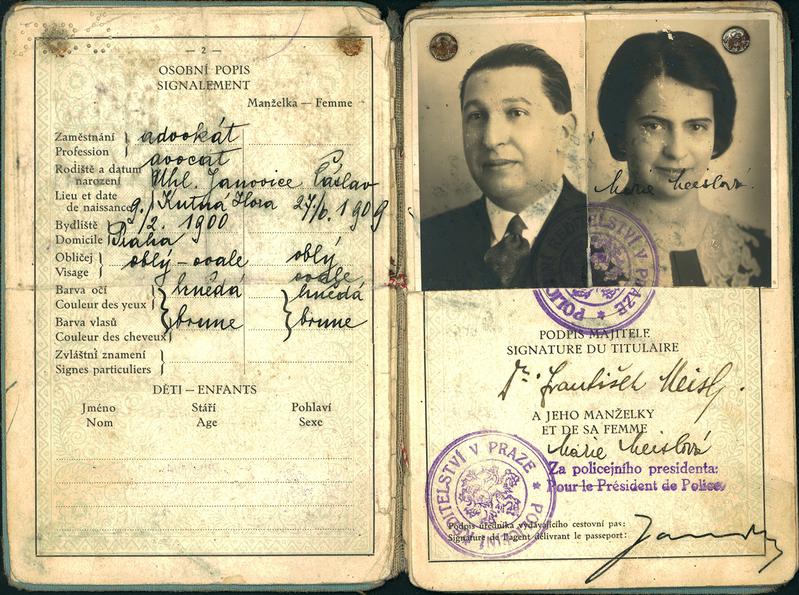 — 2 —
OSOBNÍ POPIS
SIGNALEMENT
Manželka — Femme
Zaměstnání
Profession
advokát
avocat
Rodiště a datum
narození
Lieu et date
de naissance
Uhl. Janovice Čáslav
Kutná Hora 27/6. 1909
9./2. 1900
Bydliště
Domicile
Praha
Obličej
Visage
oblý - ovale oblý
ovale
Barva očí
Couleur des yeux
hnědá hnědá
Barva vlasů
Couleur des cheveux
brune brune
Zvláštní znamení
Signes particuliers
DĚTI — ENFANTS
Jméno Stáří Pohlaví
Nom Age Sexe
Marie Meislová
POLICEJNÍ ŘEDITELSTVÍ V PRAZE
PODPIS MAJITELE
SIGNATURE DU TITULAIRE
Dr. František Meisl.
A JEHO MANŽELKY
ET DE SA FEMME
Marie Meislová
Za policejního presidenta:
Pour le Président de Police
POLICEJNÍ ŘEDITELSTVÍ V PRAZE
Podpis úředníka vydávajícího cestovní pas:
Signature de l'agent délivrant le passeport: